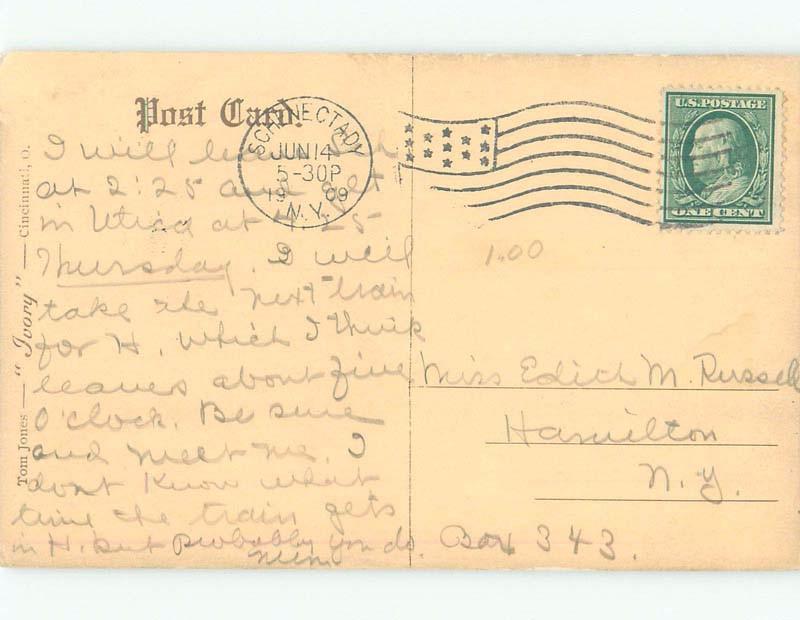 Post Card.
SCHENECTADY
JUN 14
5-30P
1909
N.Y.
U.S. POSTAGE
ONE CENT
I will leave Sch
at 2:25 and get
in Utica at 4:25
Thursday. I will
take the next train
for H, which I think
leaves about five
O'clock. Be sure
and meet me. I
dont know what
time the train gets
in H. but probably you do.
Tom Jones — "Ivory" — Cincinnati, O.
1.00
Miss Edith M. Russell
Hamilton
N.Y.
Box 343.